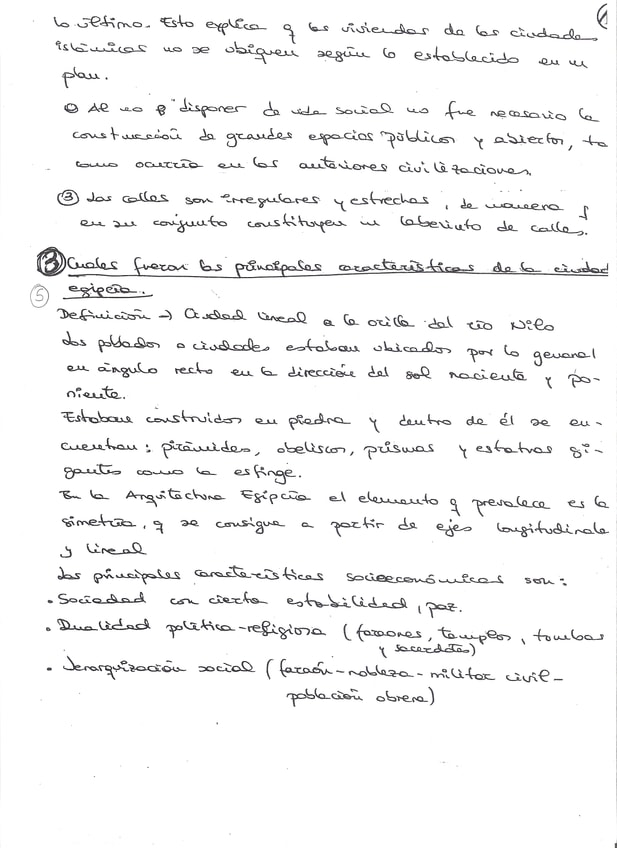 1
lo último. Esto explica q las viviendas de las ciudades
islámicas no se ubiquen según lo establecido en un
plan.
Al no disponer de vida social no fue necesario la
construcción de grandes espacios públicos y abiertos, ta
como ocurría en las anteriores civilizaciones.
③ Las calles son irregulares y estrechas, de manera q
en su conjunto constituyen un laberinto de calles.
3 Cuales fueron las principales características de la ciudad
egipcia.
5
Definición → Ciudad lineal a la orilla del río Nilo
Los poblados o ciudades estaban ubicados por lo general
en ángulo recto en la dirección del sol naciente y po-
niente.
Estaban construidos en piedra y dentro de él se en-
cuentran: pirámides, obeliscos, prismas y estatuas gi-
gantes como la esfinge.
En la Arquitectura Egipcia el elemento q prevalece es la
simetría, q se consigue a partir de ejes longitudinale
y lineal
Las principales características socioeconómicas son:
• Sociedad con cierta estabilidad, paz.
• Dualidad política-religiosa (faraones, templos, tumbas
y sacerdotes)
• Jerarquización social (faraón-nobleza-militar civil-
población obrera)